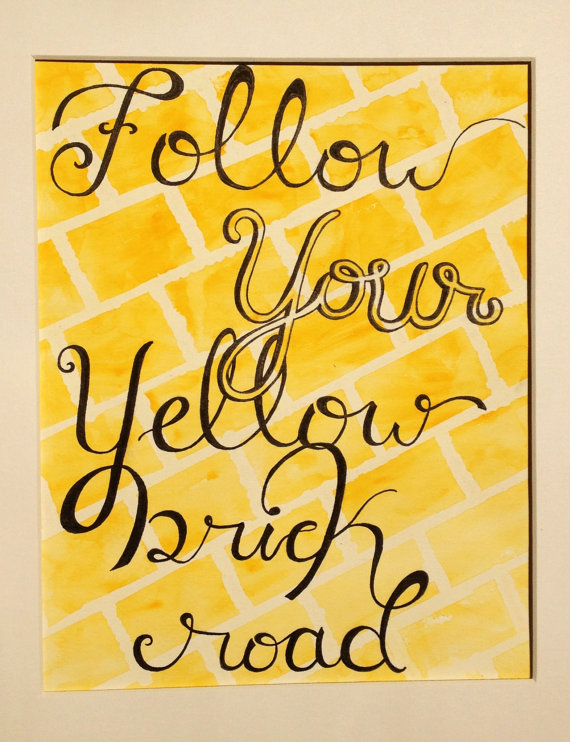 Follow
Your
Yellow
brick
road